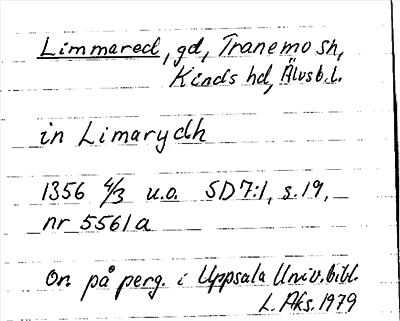 Limmared, gd, Tranemo sh,
Kinds hd, Älvsb.l.
in Limarydh
1356 4/3 u.o. SD7:1, s.19,
nr 5561a
On på perg. i Uppsala Univ.bibl.
L. Aks. 1979